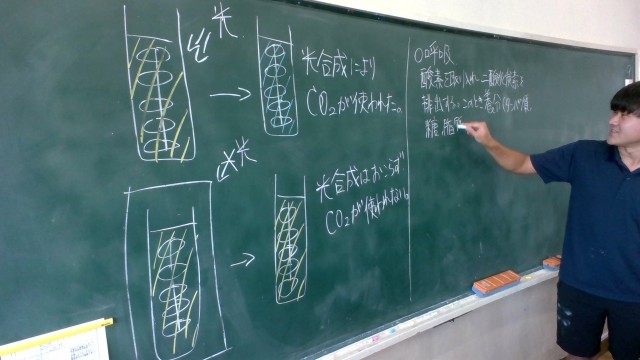 光
光合成により
CO₂が使われた。
光
光合成はおこらず
CO₂が使われない。
○呼吸
酸素を取り入れ二酸化炭素を
排出する。このとき養分
糖、脂